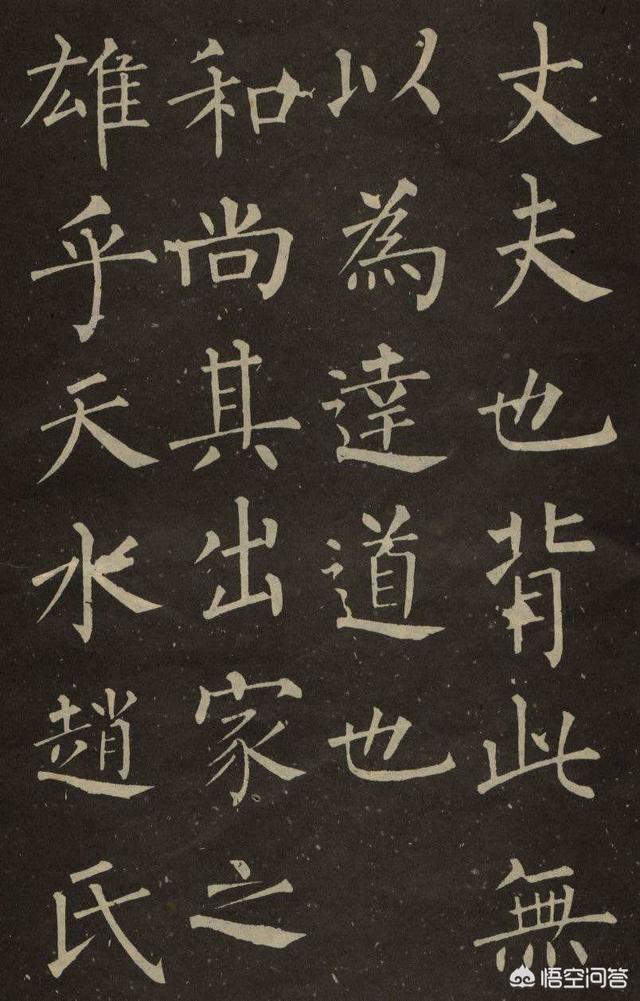 丈夫也背此無
以為達道也
和尚其出家之
雄乎天水趙氏
悟空问答